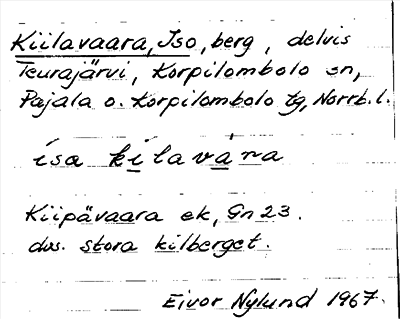 Kiilavaara, Iso, berg, delvis
Teurajärvi, Korpilombolo sn,
Pajala o. Korpilombolo tg, Norrb.l.
ísa kílavára
Kiipävaara ek, Gn 23.
dvs. stora kilberget.
Eivor Nylund 1967.